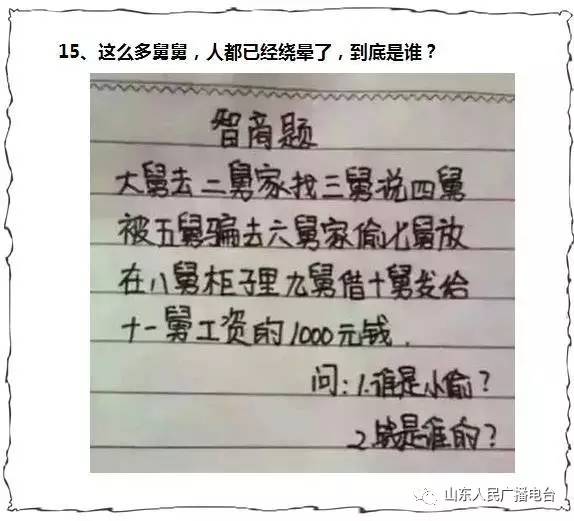 15、这么多舅舅，人都已经绕晕了，到底是谁？
智商题
大舅去二舅家找三舅说四舅
被五舅骗去六舅家偷七舅放
在八舅柜子里九舅借十舅发给
十一舅工资的1000元钱.
问:1.谁是小偷？
2.钱是谁的？
山东人民广播电台